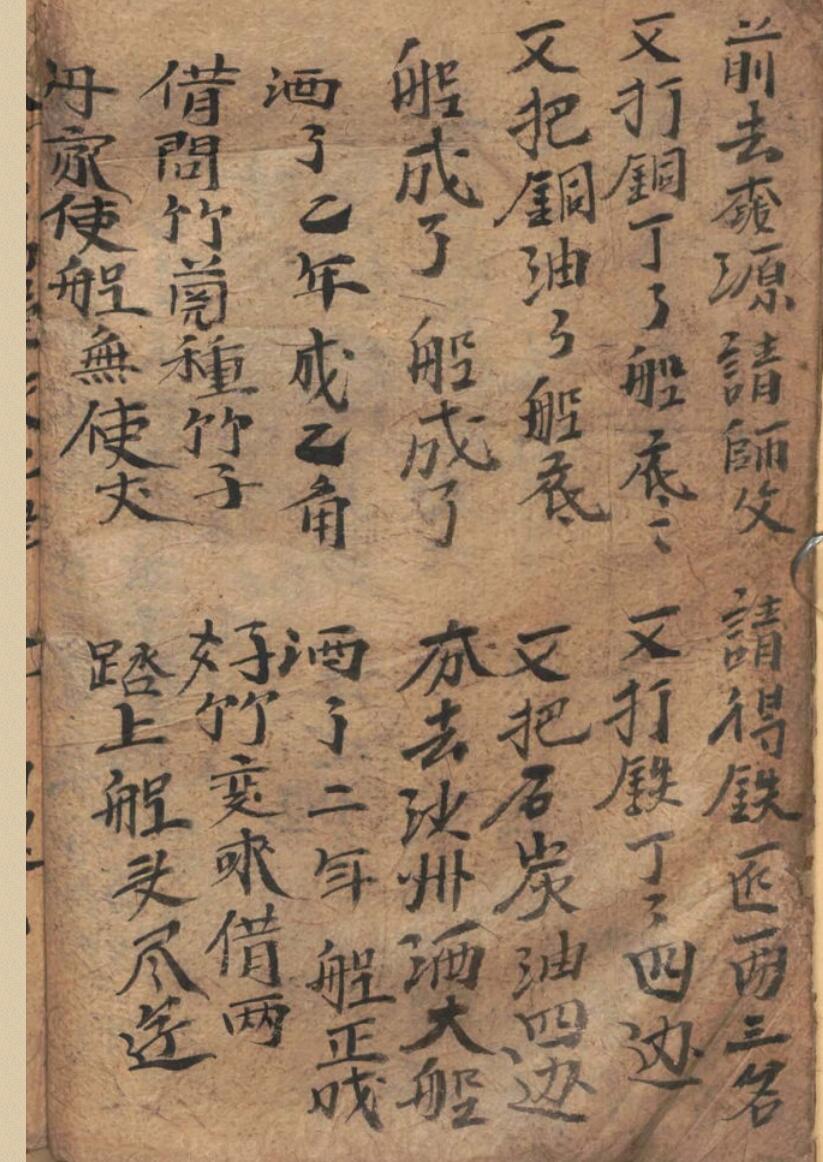 前去源請師父 請得鉄匠两三名
又打銅丁了船底 又打鉄丁了四边
又把銅油了船底 又把石炭油四边
船成了船成了 去州洒大船
洒了乙年成乙角 洒了二年船正成
借問竹種竹子 好竹变來借两
丹家使船無使 踏上船头尽